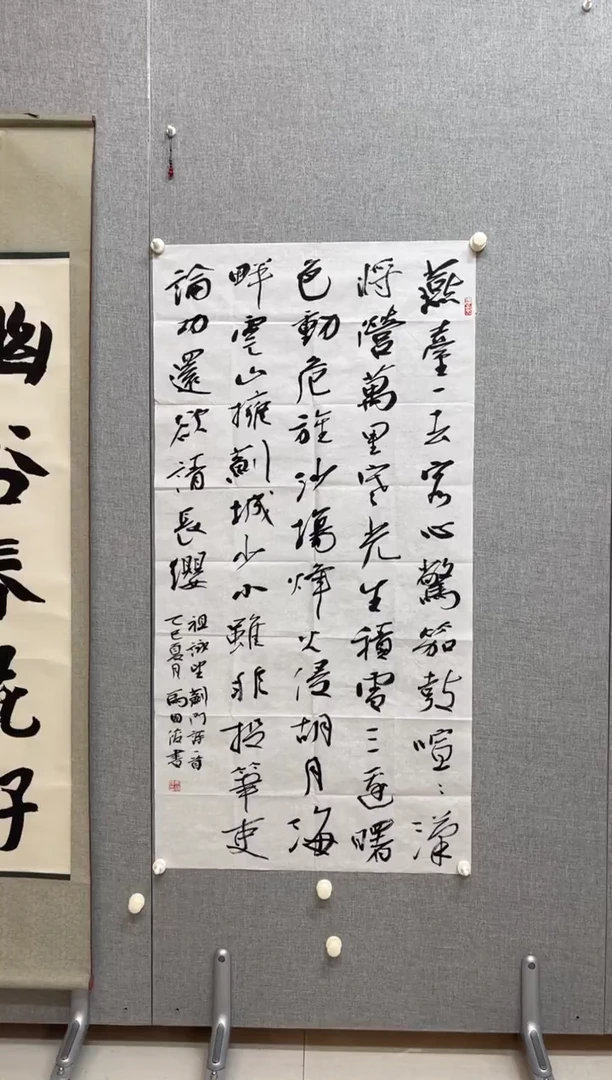 燕臺一去客心驚笳鼓喧〻漢
將營萬里寒光生積雪三邊曙
色動危旌沙場烽火侵胡月海
畔雲山擁薊城少小雖非投筆吏
論功還欲請長纓
祖詠望薊門詩一首
乙巳夏月 馬田書
幽谷好